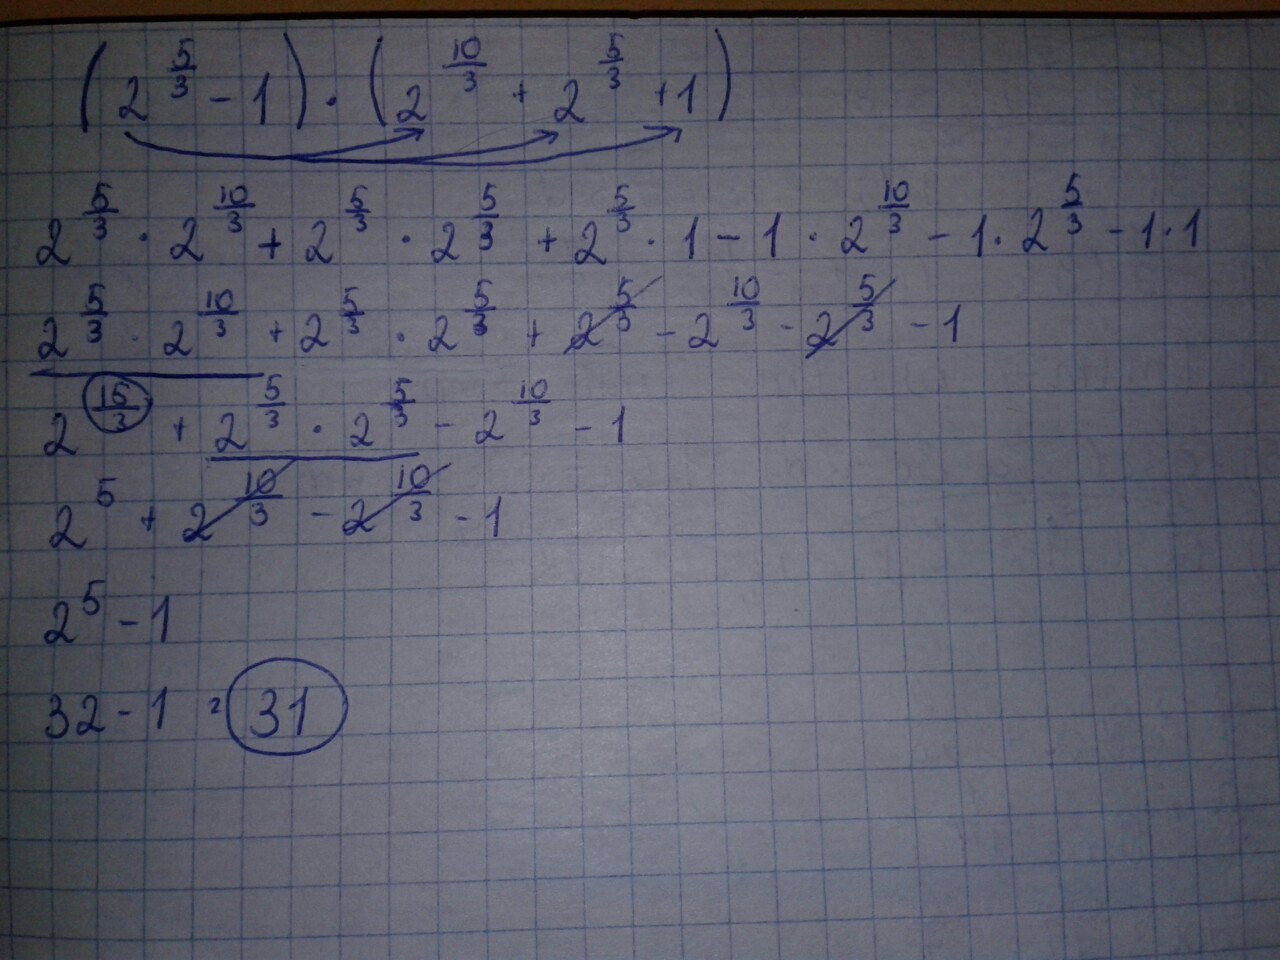 (2^{5/3} - 1) · (2^{10/3} + 2^{5/3} + 1)
2^{5/3} · 2^{10/3} + 2^{5/3} · 2^{5/3} + 2^{5/3} · 1 - 1 · 2^{10/3} - 1 · 2^{5/3} - 1 · 1
2^{5/3} · 2^{10/3} + 2^{5/3} · 2^{5/3} + 2^{5/3} - 2^{10/3} - 2^{5/3} - 1
2^{15/3} + 2^{5/3} · 2^{5/3} - 2^{10/3} - 1
2^5 + 2^{10/3} - 2^{10/3} - 1
2^5 - 1
32 - 1 = 31